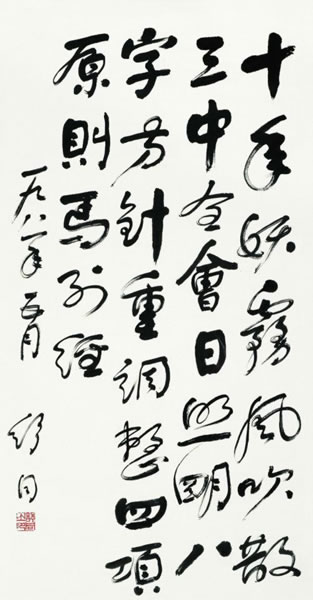 十年妖霧風吹散
三中全會日照明八
字方針重調整四項
原則馬列經
一九八一年五月
舒同